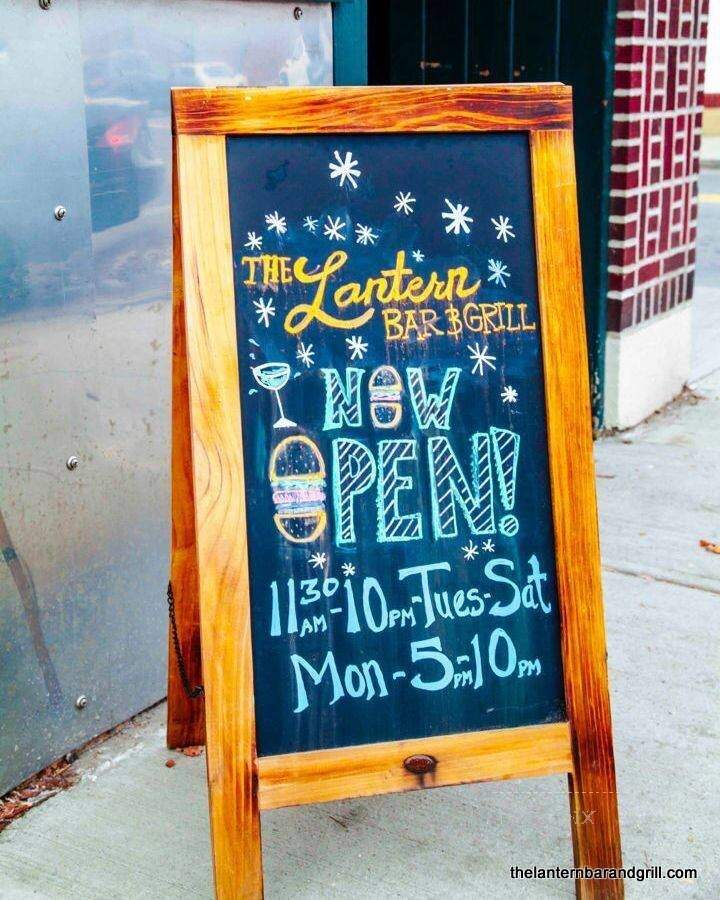 THE Lantern
BAR & GRILL
NOW
OPEN!
11 30 AM - 10 PM - Tues - Sat
Mon - 5 PM - 10 PM
thelanternbarandgrill.com